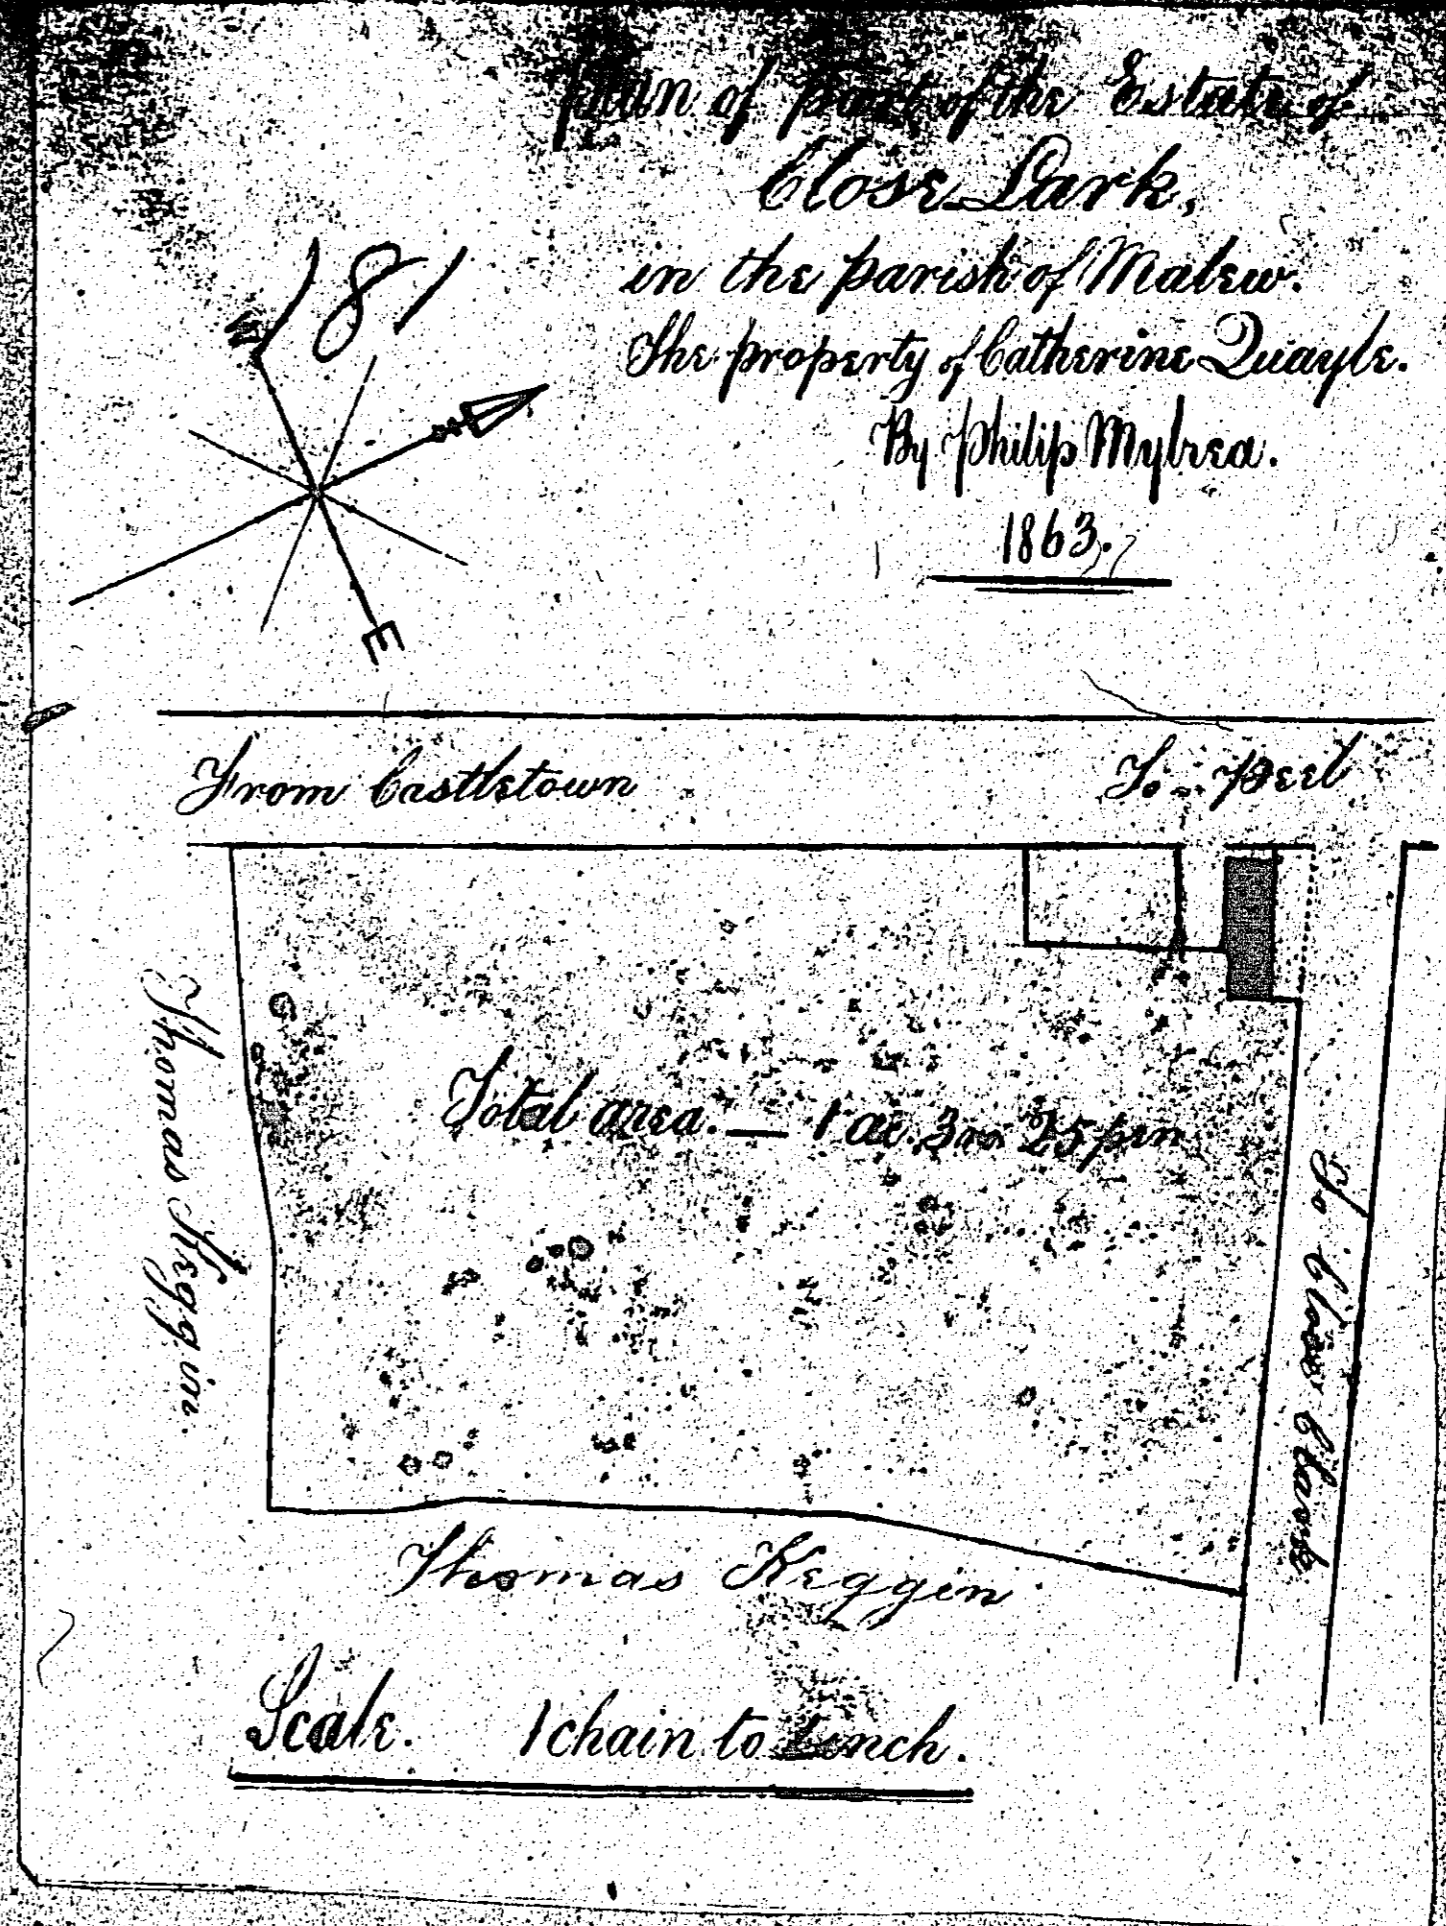 Plan of part of the Estate of
Close Lark,
in the parish of Malew.
The property of Catherine Quayle.
By Philip Mylrea.
1863.
181
W
E
From Castletown
To Peel
Thomas Keggin
Total area. — 1 ac. 3 ro 25 pen
To Close Clark
Thomas Keggin
Scale. 1 chain to inch.